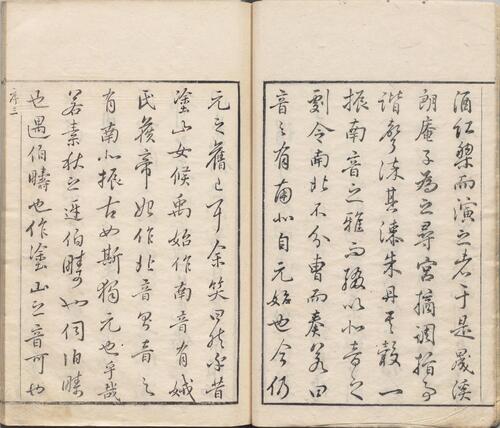 紅梨而演之者于是晟溪
朗庵子為之尋宮摘調指事
諧聲其朱丹其轂一
振南音之雅而輟以北音之
劇令南北不分曹而奏若曰
音之有南北自元始也今仍
元之舊已耳余笑曰然乎昔
塗山女候禹始作南音有娀
氏候帝始作北音則音之
有南北振古如斯獨元也乎哉
若素秋之遲伯疇也伺伯疇
也遇伯疇也作塗山之音可也
序三